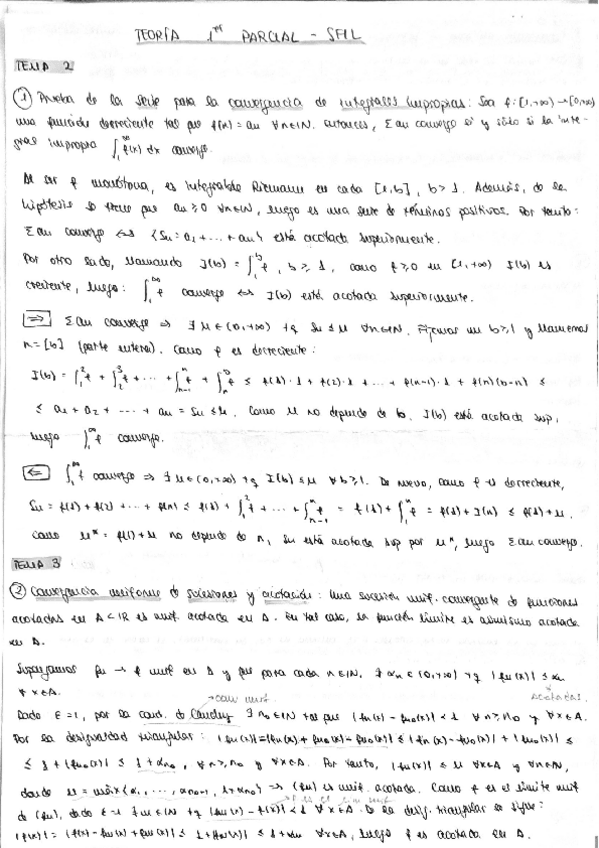 TEORÍA 1er PARCIAL - SFIL
TEMA 2
① Prueba de la serie para la convergencia de integrales impropias: Sea f:[1,+∞)→[0,+∞)
una función decreciente tal que f(n) = an ∀n∈IN. Entonces, Σan converge si y sólo si la inte-
gral impropia ∫₁^∞ f(x) dx converge.
Al ser f monótona, es integrable Riemann en cada [1,b], b > 1. Además, de la
hipótesis se tiene que an ≥ 0 ∀n∈IN, luego es una serie de términos positivos. Por tanto:
Σan converge ⇔ {Sn = a1 + ... + an} está acotada superiormente.
Por otro lado, llamando I(b) = ∫₁^b f, b ≥ 1, como f ≥ 0 en [1,+∞) I(b) es
creciente, luego: ∫₁^∞ f converge ⇔ I(b) está acotada superiormente.
⇒ Σan converge ⇒ ∃ M∈(0,+∞) tq Sn ≤ M ∀n∈IN. Fijamos un b ≥ 1 y llamemos
n = [b] (parte entera). Como f es decreciente:
I(b) = ∫₁² f + ∫₂³ f + ... + ∫ₙ₋₁ⁿ f + ∫ₙ^b f ≤ f(1)·1 + f(2)·1 + ... + f(n-1)·1 + f(n)(b-n) ≤
≤ a1 + a2 + ... + an = Sn ≤ M. Como M no depende de b, I(b) está acotada sup,
luego ∫₁^∞ f converge.
⇐ ∫₁^∞ f converge ⇒ ∃ M∈(0,+∞) tq I(b) ≤ M ∀b ≥ 1. De nuevo, como f es decreciente,
Sn = f(1) + f(2) + ... + f(n) ≤ f(1) + ∫₁² f + ... + ∫ₙ₋₁ⁿ f = f(1) + ∫₁ⁿ f = f(1) + I(n) ≤ f(1) + M.
Como M* = f(1) + M no depende de n, Sn está acotada sup por M*, luego Σan converge.
TEMA 3
② Convergencia uniforme de sucesiones y acotación: Una sucesión unif. convergente de funciones
acotadas en A⊂IR es unif. acotada en A. En tal caso, la función límite es asimismo acotada
en A.
Supongamos fn → f unif en A y que para cada n∈IN, ∃ αn∈(0,+∞) tq |fn(x)| ≤ αn
∀x∈A.
acotadas
conv unif.
Dado ε = 1, por la cond. de Cauchy ∃ n0∈IN tal que |fn(x) - fn0(x)| < 1 ∀n ≥ n0 y ∀x∈A.
Por la desigualdad triangular: |fn(x)| = |fn(x) + fn0(x) - fn0(x)| ≤ |fn(x) - fn0(x)| + |fn0(x)| ≤
≤ 1 + |fn0(x)| ≤ 1 + αn0, ∀n ≥ n0 y ∀x∈A. Por tanto, |fn(x)| ≤ M ∀x∈A y ∀n∈IN,
donde M = máx{α1, ..., αn0-1, 1+αn0} ⇒ (fn) es unif. acotada. Como f es el límite unif
de (fn), dado ε = 1 ∃ m∈IN tq |fm(x) - f(x)| < 1 ∀x∈A. De la desig. triangular se sigue:
|f(x)| = |f(x) - fm(x) + fm(x)| ≤ 1 + |fm(x)| ≤ 1 + αm ∀x∈A, luego f es acotada en A.